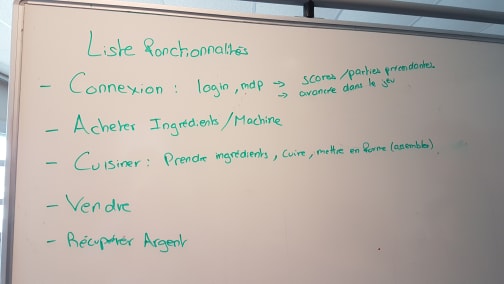 Liste Fonctionnalités
- Connexion : login, mdp → scores/parties précédentes.
→ avancée dans le jeu
- Acheter Ingrédients/Machine
- Cuisiner : Prendre ingrédients, cuire, mettre en forme (assembler)
- Vendre
- Récupérer Argent